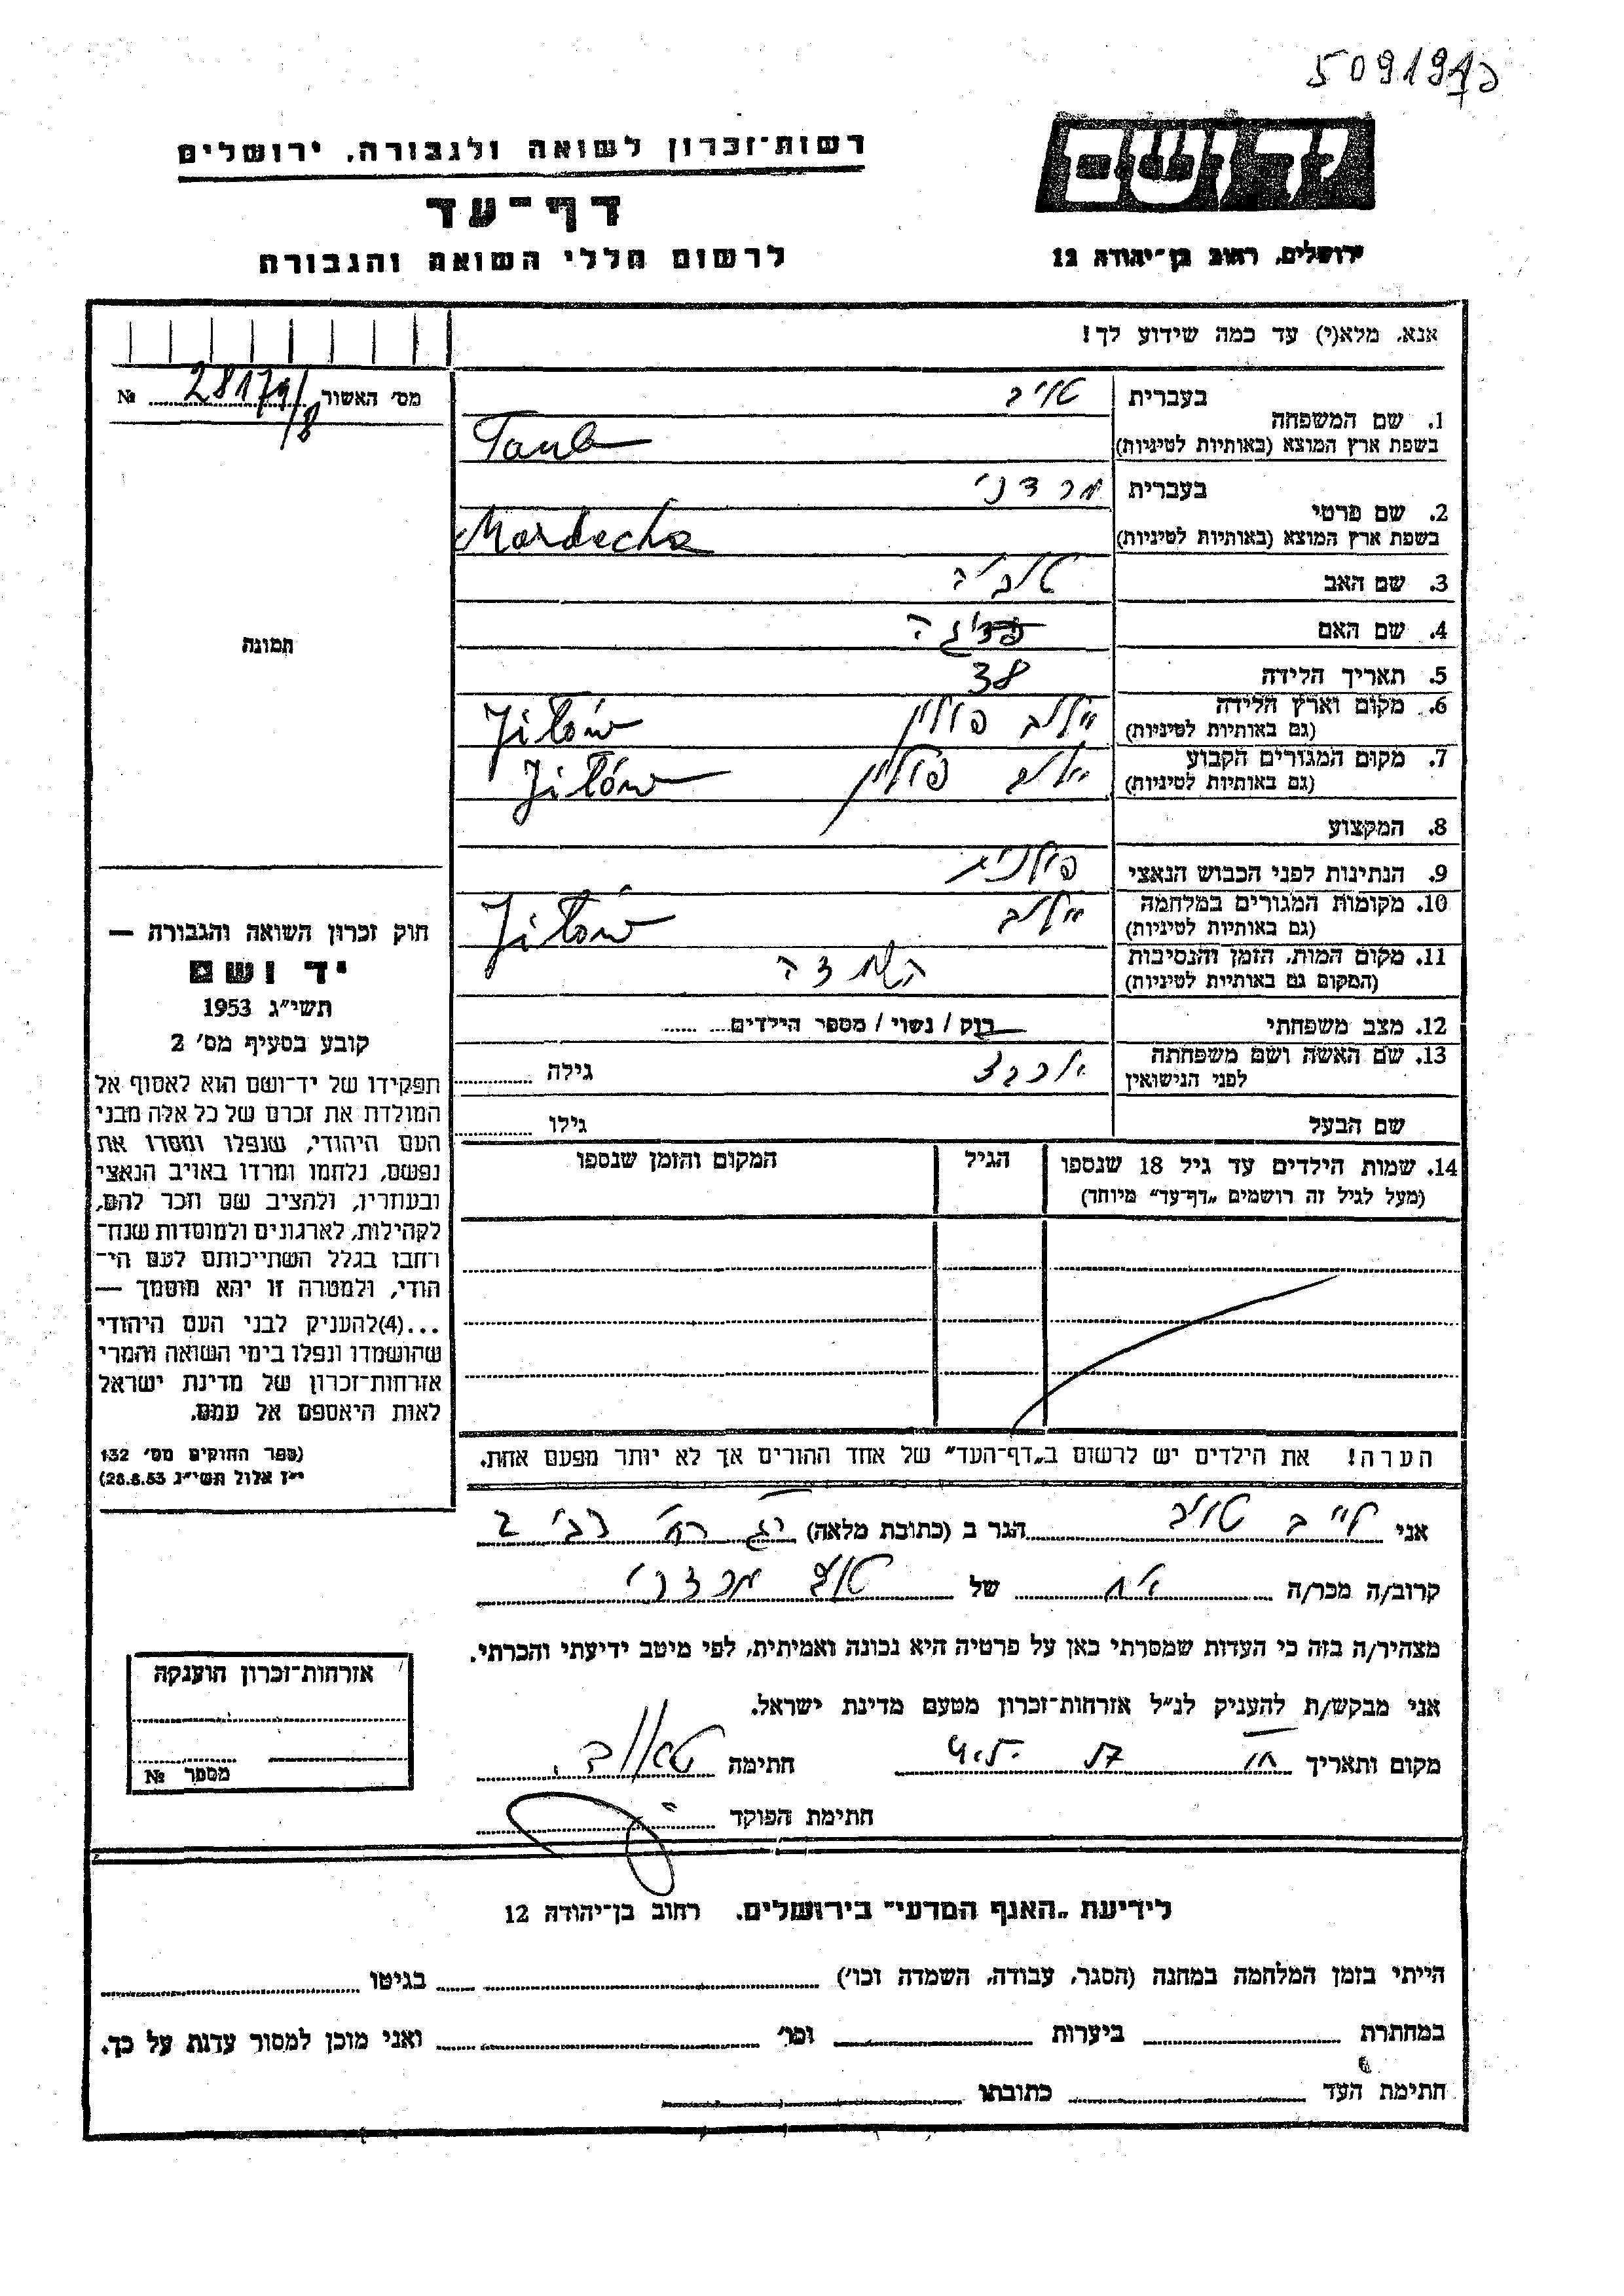 509194ס
רשות־זכרון לשואה ולגבורה, ירושלים
יד ושם
דף־עד
לרשום חללי השואה והגבורה
ירושלים, רחוב בן־יהודה 12
אנא, מלא(י) עד כמה שידוע לך!
מס׳ האשור 28179/8 №
תמונה
1. שם המשפחה
בעברית טויב
בשפת ארץ המוצא (באותיות לטיניות) Taub
2. שם פרטי
בעברית מרדכי
בשפת ארץ המוצא (באותיות לטיניות) Mordecha
3. שם האב
4. שם האם
5. תאריך הלידה 38
6. מקום וארץ הלידה פולין Jiłów
(גם באותיות לטיניות)
7. מקום המגורים הקבוע פולין Jiłów
(גם באותיות לטיניות)
8. המקצוע
9. הנתינות לפני הכבוש הנאצי פולנית
10. מקומות המגורים במלחמה Jiłów
(גם באותיות לטיניות)
11. מקום המות, הזמן והנסיבות השמדה
(המקום גם באותיות לטיניות)
12. מצב משפחתי רוק / נשוי / מספר הילדים
13. שם האשה ושם משפחתה גילה
לפני הנישואין
שם הבעל גילו
14. שמות הילדים עד גיל 18 שנספו הגיל המקום והזמן שנספו
(מעל לגיל זה רושמים „דף־עד” מיוחד)
הערה! את הילדים יש לרשום ב„דף־העד” של אחד ההורים אך לא יותר מפעם אחת.
חוק זכרון השואה והגבורה —
יד ושם
תשי״ג 1953
קובע בסעיף מס׳ 2
תפקידו של יד־ושם הוא לאסוף אל
המולדת את זכרם של כל אלה מבני
העם היהודי, שנפלו ומסרו את
נפשם, נלחמו ומרדו באויב הנאצי
ובעוזריו, ולהציב שם וזכר להם,
לקהילות, לארגונים ולמוסדות שנח־
רחבו בגלל השתייכותם לעם הי־
הודי, ולמטרה זו יהא מוסמך —
...(4)להעניק לבני העם היהודי
שהושמדו ונפלו בימי השואה והמרי
אזרחות־זכרון של מדינת ישראל
לאות היאספם אל עמם.
(ספר החוקים מס׳ 132
י״ז אלול תשי״ג 28.8.53)
אני לייב טויב הגר ב (כתובת מלאה)
קרוב/ה מכר/ה אח של טויב מרדכי
מצהיר/ה בזה כי העדות שמסרתי כאן על פרטיה היא נכונה ואמיתית, לפי מיטב ידיעתי והכרתי.
אני מבקש/ת להעניק לנ״ל אזרחות־זכרון מטעם מדינת ישראל.
מקום ותאריך חתימה
חתימת הפוקד
אזרחות־זכרון הוענקה
מספר №
לידיעת „האנף המדעי” בירושלים, רחוב בן־יהודה 12
הייתי בזמן המלחמה במחנה (הסגר, עבודה, השמדה וכו׳) בגיטו
במחתרת ביערות וכו׳ ואני מוכן למסור עדות על כך.
חתימת העד כתובתו